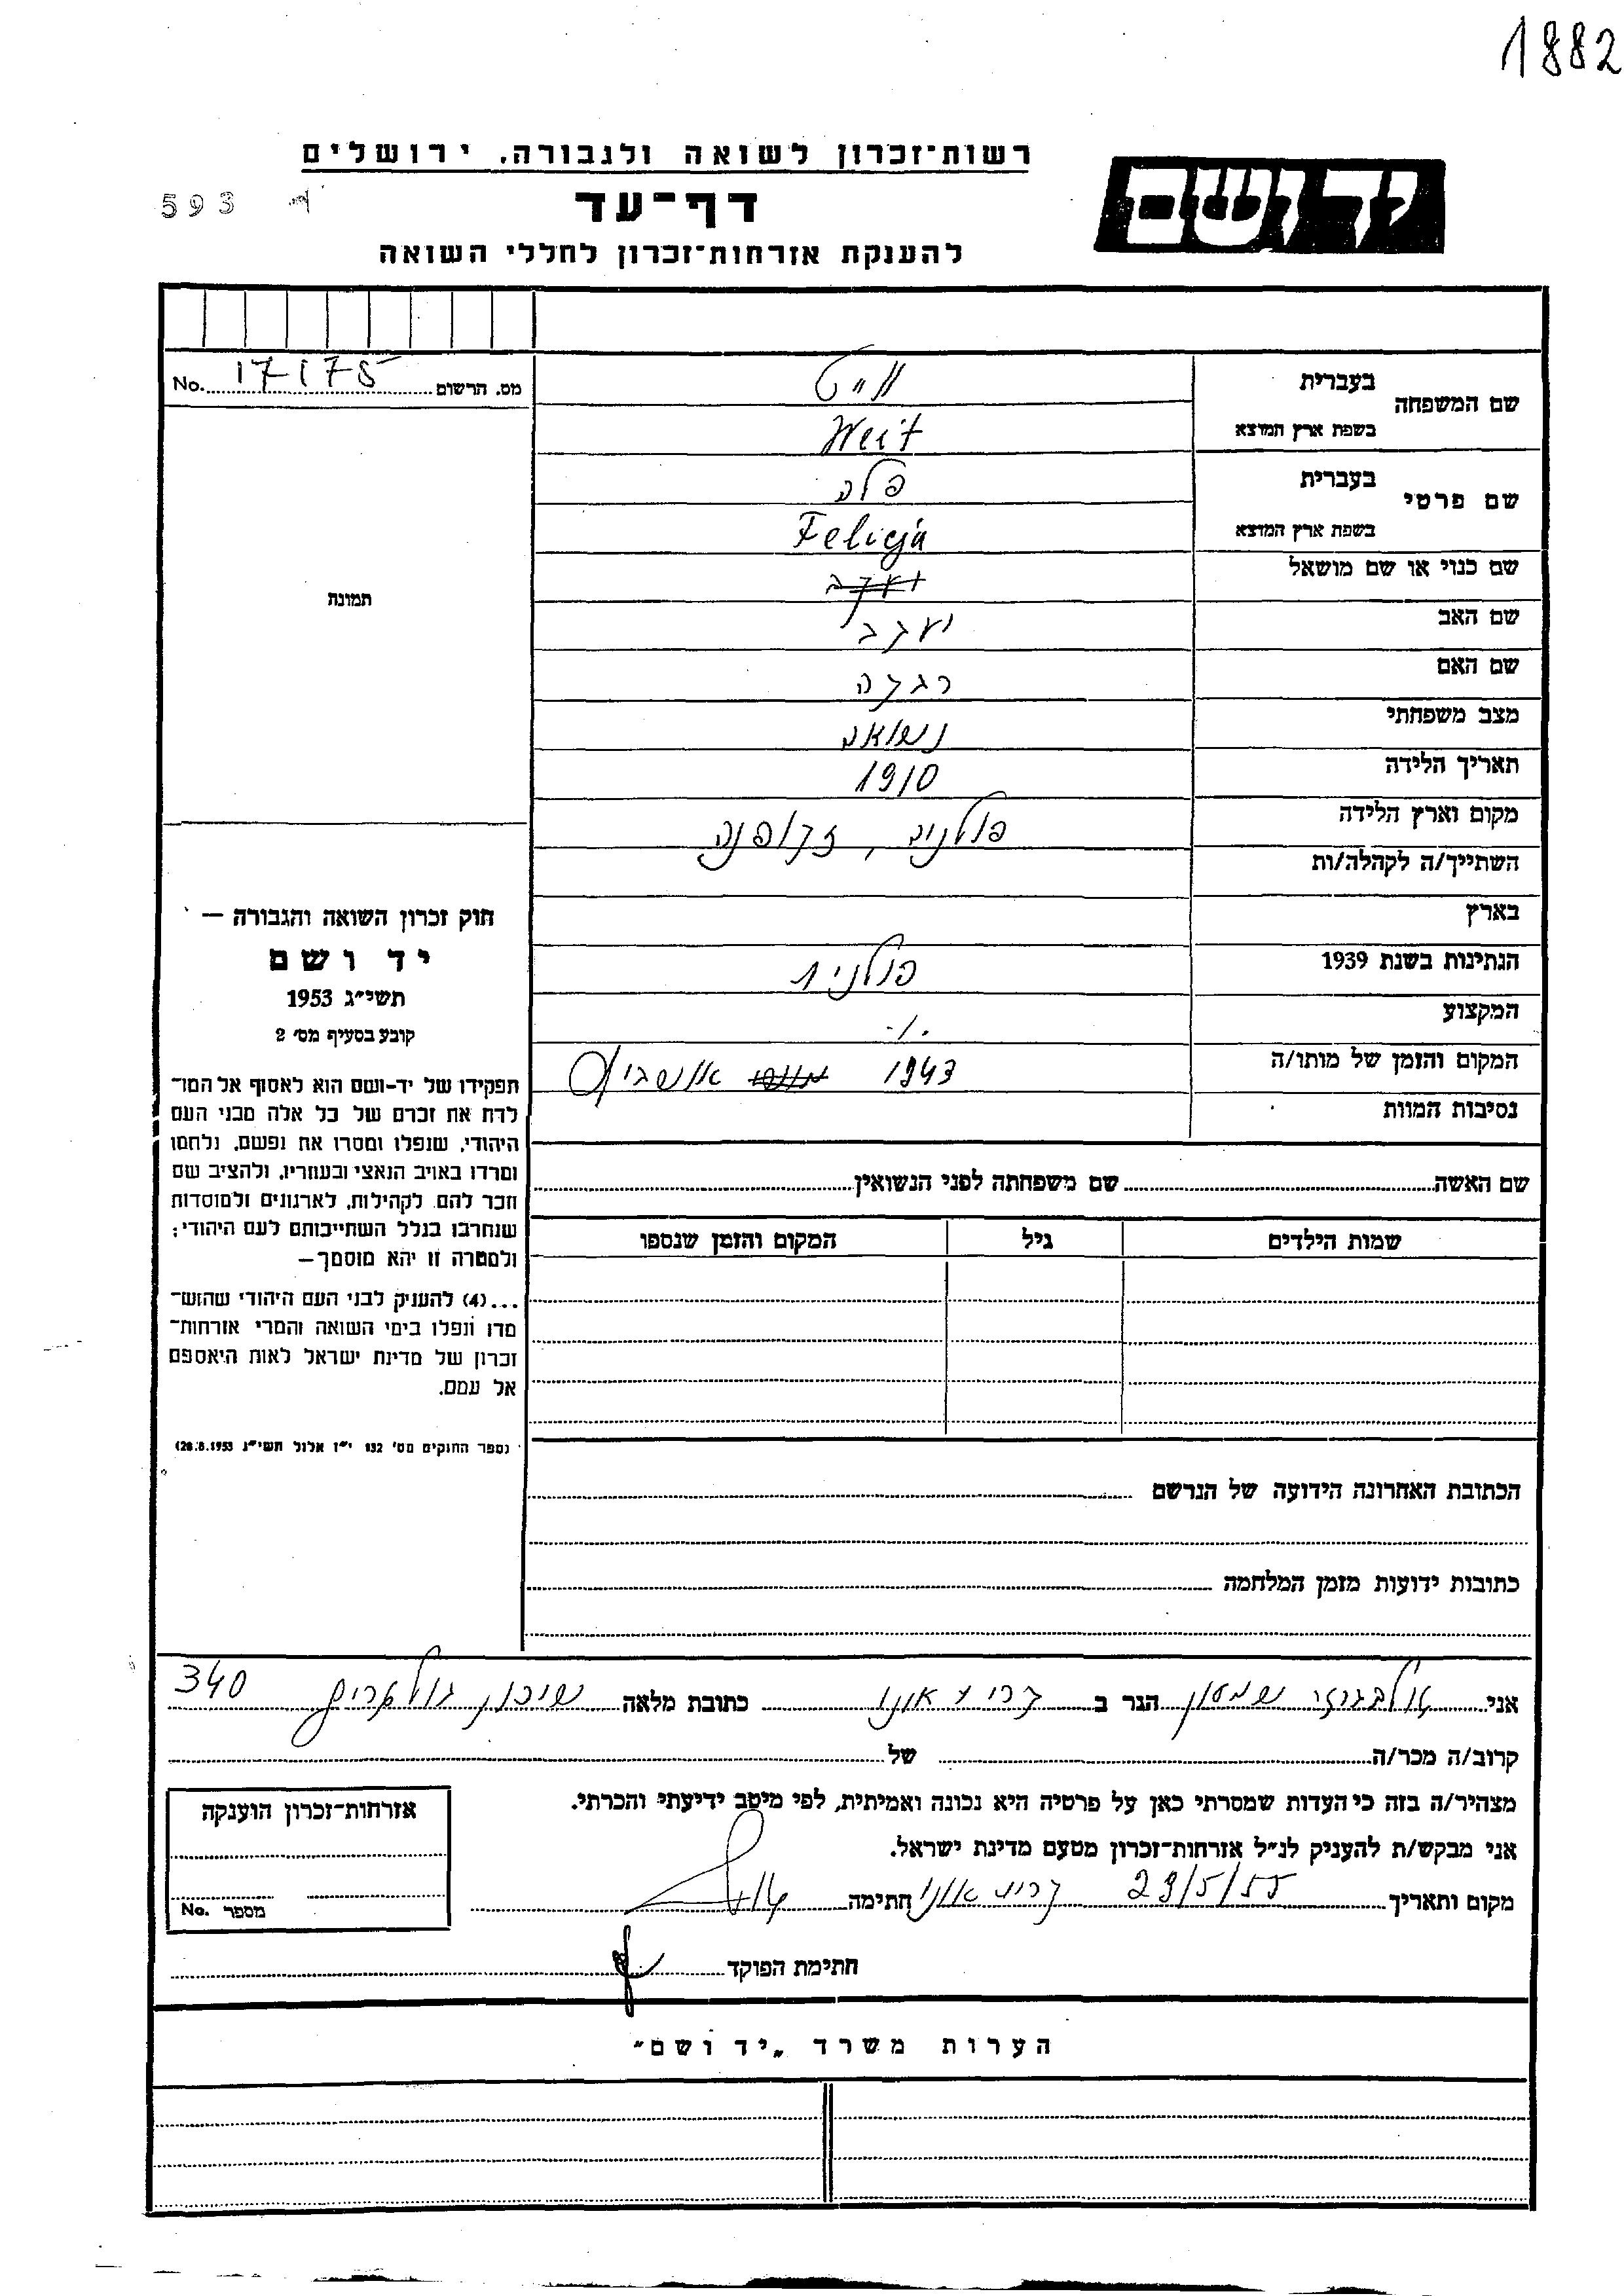 1882
רשות־זכרון לשואה ולגבורה. ירושלים
יד ושם
593
דף־עד
להענקת אזרחות־זכרון לחללי השואה
No. 17175 מס. הרשום
שם המשפחה
בעברית
ווייט
בשפת ארץ המוצא
Weit
שם פרטי
בעברית
פלה
בשפת ארץ המוצא
Felicja
שם כנוי או שם מושאל
שם האב
יעקב
שם האם
רבקה
מצב משפחתי
נשואה
תאריך הלידה
1910
מקום וארץ הלידה
פולניה, זקופנה
השתייך/ה לקהלה/ות
בארץ
הנתינות בשנת 1939
פולנית
המקצוע
./.
המקום והזמן של מותו/ה
1943 אושביץ
נסיבות המוות
תמונה
חוק זכרון השואה והגבורה —
יד ושם
תשי״ג 1953
קובע בסעיף מס׳ 2
תפקידו של יד-ושם הוא לאסוף אל המו־
לדת את זכרם של כל אלה מבני העם
היהודי, שנפלו ומסרו את נפשם, נלחמו
ומרדו באויב הנאצי ובעוזריו, ולהציב שם
וזכר להם, לקהילות, לארגונים ולמוסדות
שנחרבו בגלל השתייכותם לעם היהודי;
ולמטרה זו יהא מוסמך—
...(4) להעניק לבני העם היהודי שהוש־
מדו ונפלו בימי השואה והמרי אזרחות־
זכרון של מדינת ישראל לאות היאספם
אל עמם.
(ספר החוקים מס׳ 132 י״ז אלול תשי״ג 28.8.1953)
שם האשה שם משפחתה לפני הנשואין
שמות הילדים גיל המקום והזמן שנספו
הכתובת האחרונה הידועה של הנרשם
כתובות ידועות מזמן המלחמה
אני שמעון הגר ב קרית אונו כתובת מלאה שיכון 340
קרוב/ה מכר/ה של
מצהיר/ה בזה כי העדות שמסרתי כאן על פרטיה היא נכונה ואמיתית, לפי מיטב ידיעתי והכרתי.
אני מבקש/ת להעניק לנ״ל אזרחות־זכרון מטעם מדינת ישראל.
מקום ותאריך 29/5/55 קרית אונו חתימה
חתימת הפוקד
אזרחות־זכרון הוענקה
מספר No.
הערות משרד „יד ושם״